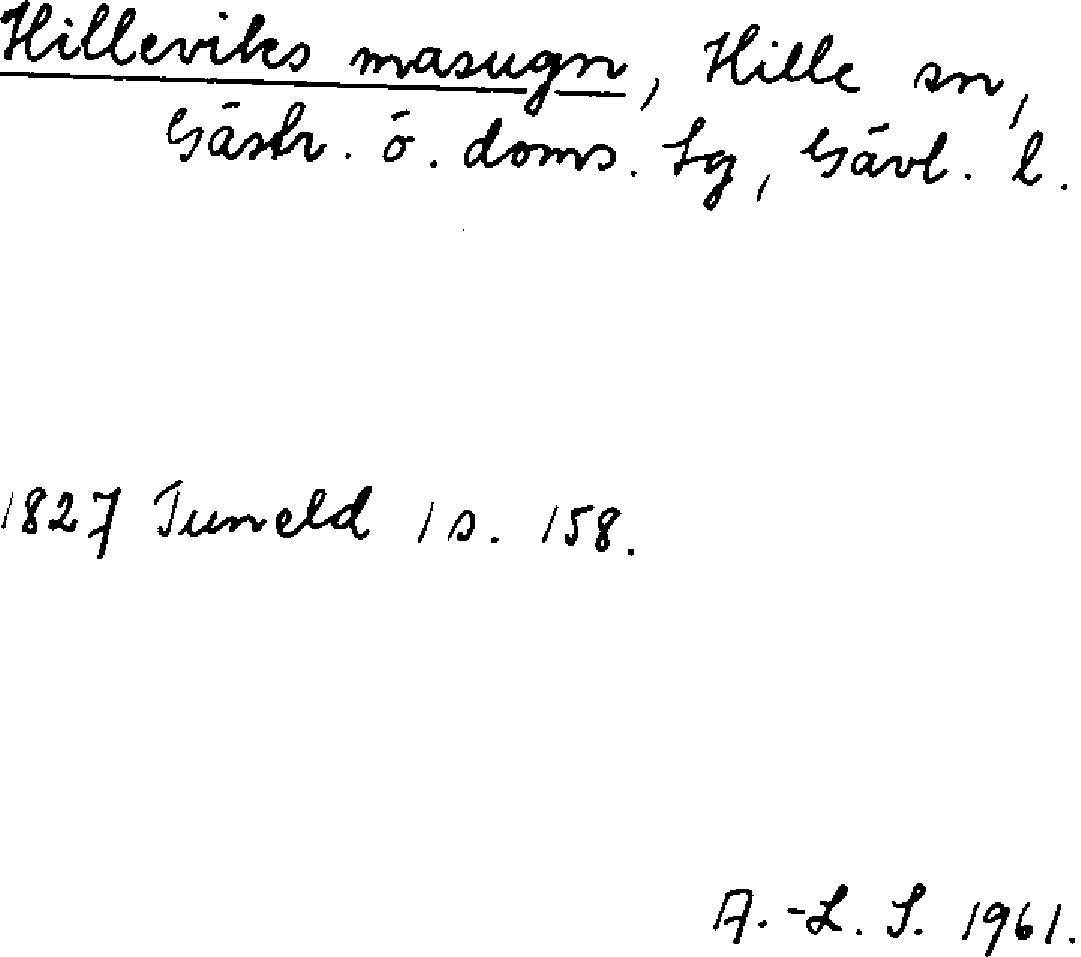 Hilleviks masugn, Hille sn,
Gästr. ö. doms. tg, Gävl. l.
1827 Tuneld 1 s. 158.
A.-L. S. 1961.